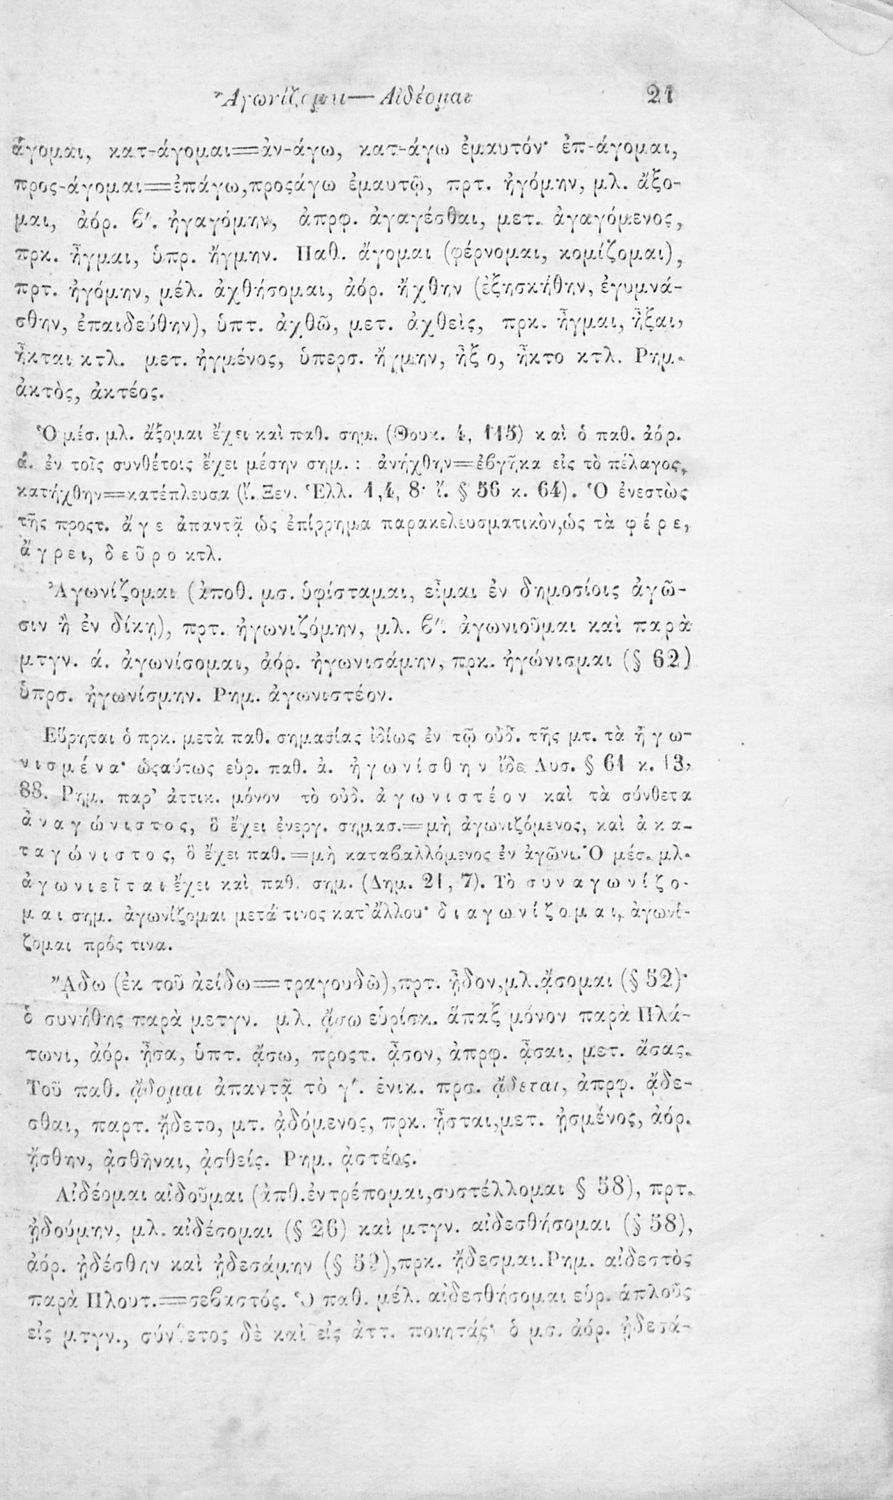 Ἀγωνίζομαι — Αἰδέομαι 21
άγομαι, κατ-άγομαι=ἀν-άγω, κατ-άγω ἐμαυτόν· ἐπ-άγομαι,
προς-άγομαι=ἐπάγω,προςάγω ἐμαυτῷ, πρτ. ἠγόμην, μλ. ἄξο-
μαι, ἀόρ. β΄. ἠγαγόμην, ἀπρφ. ἀγαγέσθαι, μετ. ἀγαγόμενος,
πρκ. ἦγμαι, ὑπρ. ἤγμην. Παθ. ἄγομαι (φέρνομαι, κομίζομαι),
πρτ. ἠγόμην, μέλ. ἀχθήσομαι, ἀόρ. ἤχθην (ἐξησκήθην, ἐγυμνά-
σθην, ἐπαιδεύθην), ὑπτ. ἀχθῶ, μετ. ἀχθεὶς, πρκ. ἦγμαι, ἦξαι,
ἦκται κτλ. μετ. ἠγμένος, ὑπερσ. ἤγμην, ἦξο, ἦκτο κτλ. Ρημ.
ἀκτὸς, ἀκτέος.
Ὁ μέσ. μλ. ἄξομαι ἔχει καὶ παθ. σημ. (Θουκ. 4, 115) καὶ ὁ παθ. ἀόρ.
ά. ἐν τοῖς συνθέτοις ἔχει μέσην σημ. : ἀνήχθην=ἐβγῆκα εἰς τὸ πέλαγος,
κατήχθην=κατέπλευσα (ἴ. Ξεν. Ἑλλ. 1,4, 8· ἴ. § 56 κ. 64). Ὁ ἐνεστὼς
τῆς προςτ. ἄγε ἀπαντᾷ ὡς ἐπίρρημα παρακελευσματικὸν,ὡς τὰ φέρε,
ἄγρει, δεῦρο κτλ.
Ἀγωνίζομαι (ἀποθ. μσ. ὑφίσταμαι, εἶμαι ἐν δημοσίοις ἀγῶ-
σιν ἢ ἐν δίκῃ), πρτ. ἠγωνιζόμην, μλ. β΄. ἀγωνιοῦμαι καὶ παρὰ
μτγν. ά. ἀγωνίσομαι, ἀόρ. ἠγωνισάμην, πρκ. ἠγώνισμαι (§ 62)
ὑπρσ. ἠγωνίσμην. Ρημ. ἀγωνιστέον.
Εὕρηται ὁ πρκ. μετὰ παθ. σημασίας ἰδίως ἐν τῷ οὐδ. τῆς μτ. τὰ ἠγω-
νισμένα· ὡςαύτως εὑρ. παθ. ἀ. ἠγωνίσθην ἴδε Λυσ. § 61 κ. 13,
88. Ρημ. παρ' ἀττικ. μόνον τὸ οὐδ. ἀγωνιστέον καὶ τὰ σύνθετα
ἀναγώνιστος, ὃ ἔχει ἐνεργ. σημασ.=μὴ ἀγωνιζόμενος, καὶ ἀκα-
ταγώνιστος, ὃ ἔχει παθ.=μὴ καταβαλλόμενος ἐν ἀγῶνι. Ὁ μέσ. μλ.
ἀγωνιεῖται ἔχει καὶ παθ. σημ. (Δημ. 21, 7). Τὸ συναγωνίζο-
μαι σημ. ἀγωνίζομαι μετά τινος κατ' ἄλλου· διαγωνίζομαι, ἀγωνί-
ζομαι πρός τινα.
ᾌδω (ἐκ τοῦ ἀείδω=τραγουδῶ),πρτ. ᾖδον,μλ.ᾄσομαι (§ 52)·
ὁ συνήθης παρὰ μετγν. μλ. ᾄσω εὑρίσκ. ἅπαξ μόνον παρὰ Πλά-
τωνι, ἀόρ. ᾖσα, ὑπτ. ᾄσω, προςτ. ᾆσον, ἀπρφ. ᾆσαι, μετ. ᾄσας.
Τοῦ παθ. ᾄδομαι ἀπαντᾷ τὸ γ΄. ἑνικ. πρσ. ᾄδεται, ἀπρφ. ᾄδε-
σθαι, παρτ. ᾔδετο, μτ. ᾀδόμενος, πρκ. ᾖσται,μετ. ᾐσμένος, ἀόρ.
ᾔσθην, ᾀσθῆναι, ᾀσθείς. Ρημ. ᾀστέος.
Αἰδέομαι αἰδοῦμαι (ἀπθ.ἐντρέπομαι,συστέλλομαι § 58), πρτ.
ᾐδούμην, μλ. αἰδέσομαι (§ 26) καὶ μτγν. αἰδεσθήσομαι (§ 58),
ἀόρ. ᾐδέσθην καὶ ᾐδεσάμην (§ 59),πρκ. ᾔδεσμαι.Ρημ. αἰδεστὸς
παρὰ Πλουτ.=σεβαστός. Ὁ παθ. μέλ. αἰδεσθήσομαι εὑρ. ἁπλοῦς
εἰς μτγν., σύνθετος δὲ καὶ εἰς ἀττ. ποιητάς· ὁ μσ. ἀόρ. ᾐδεσά-